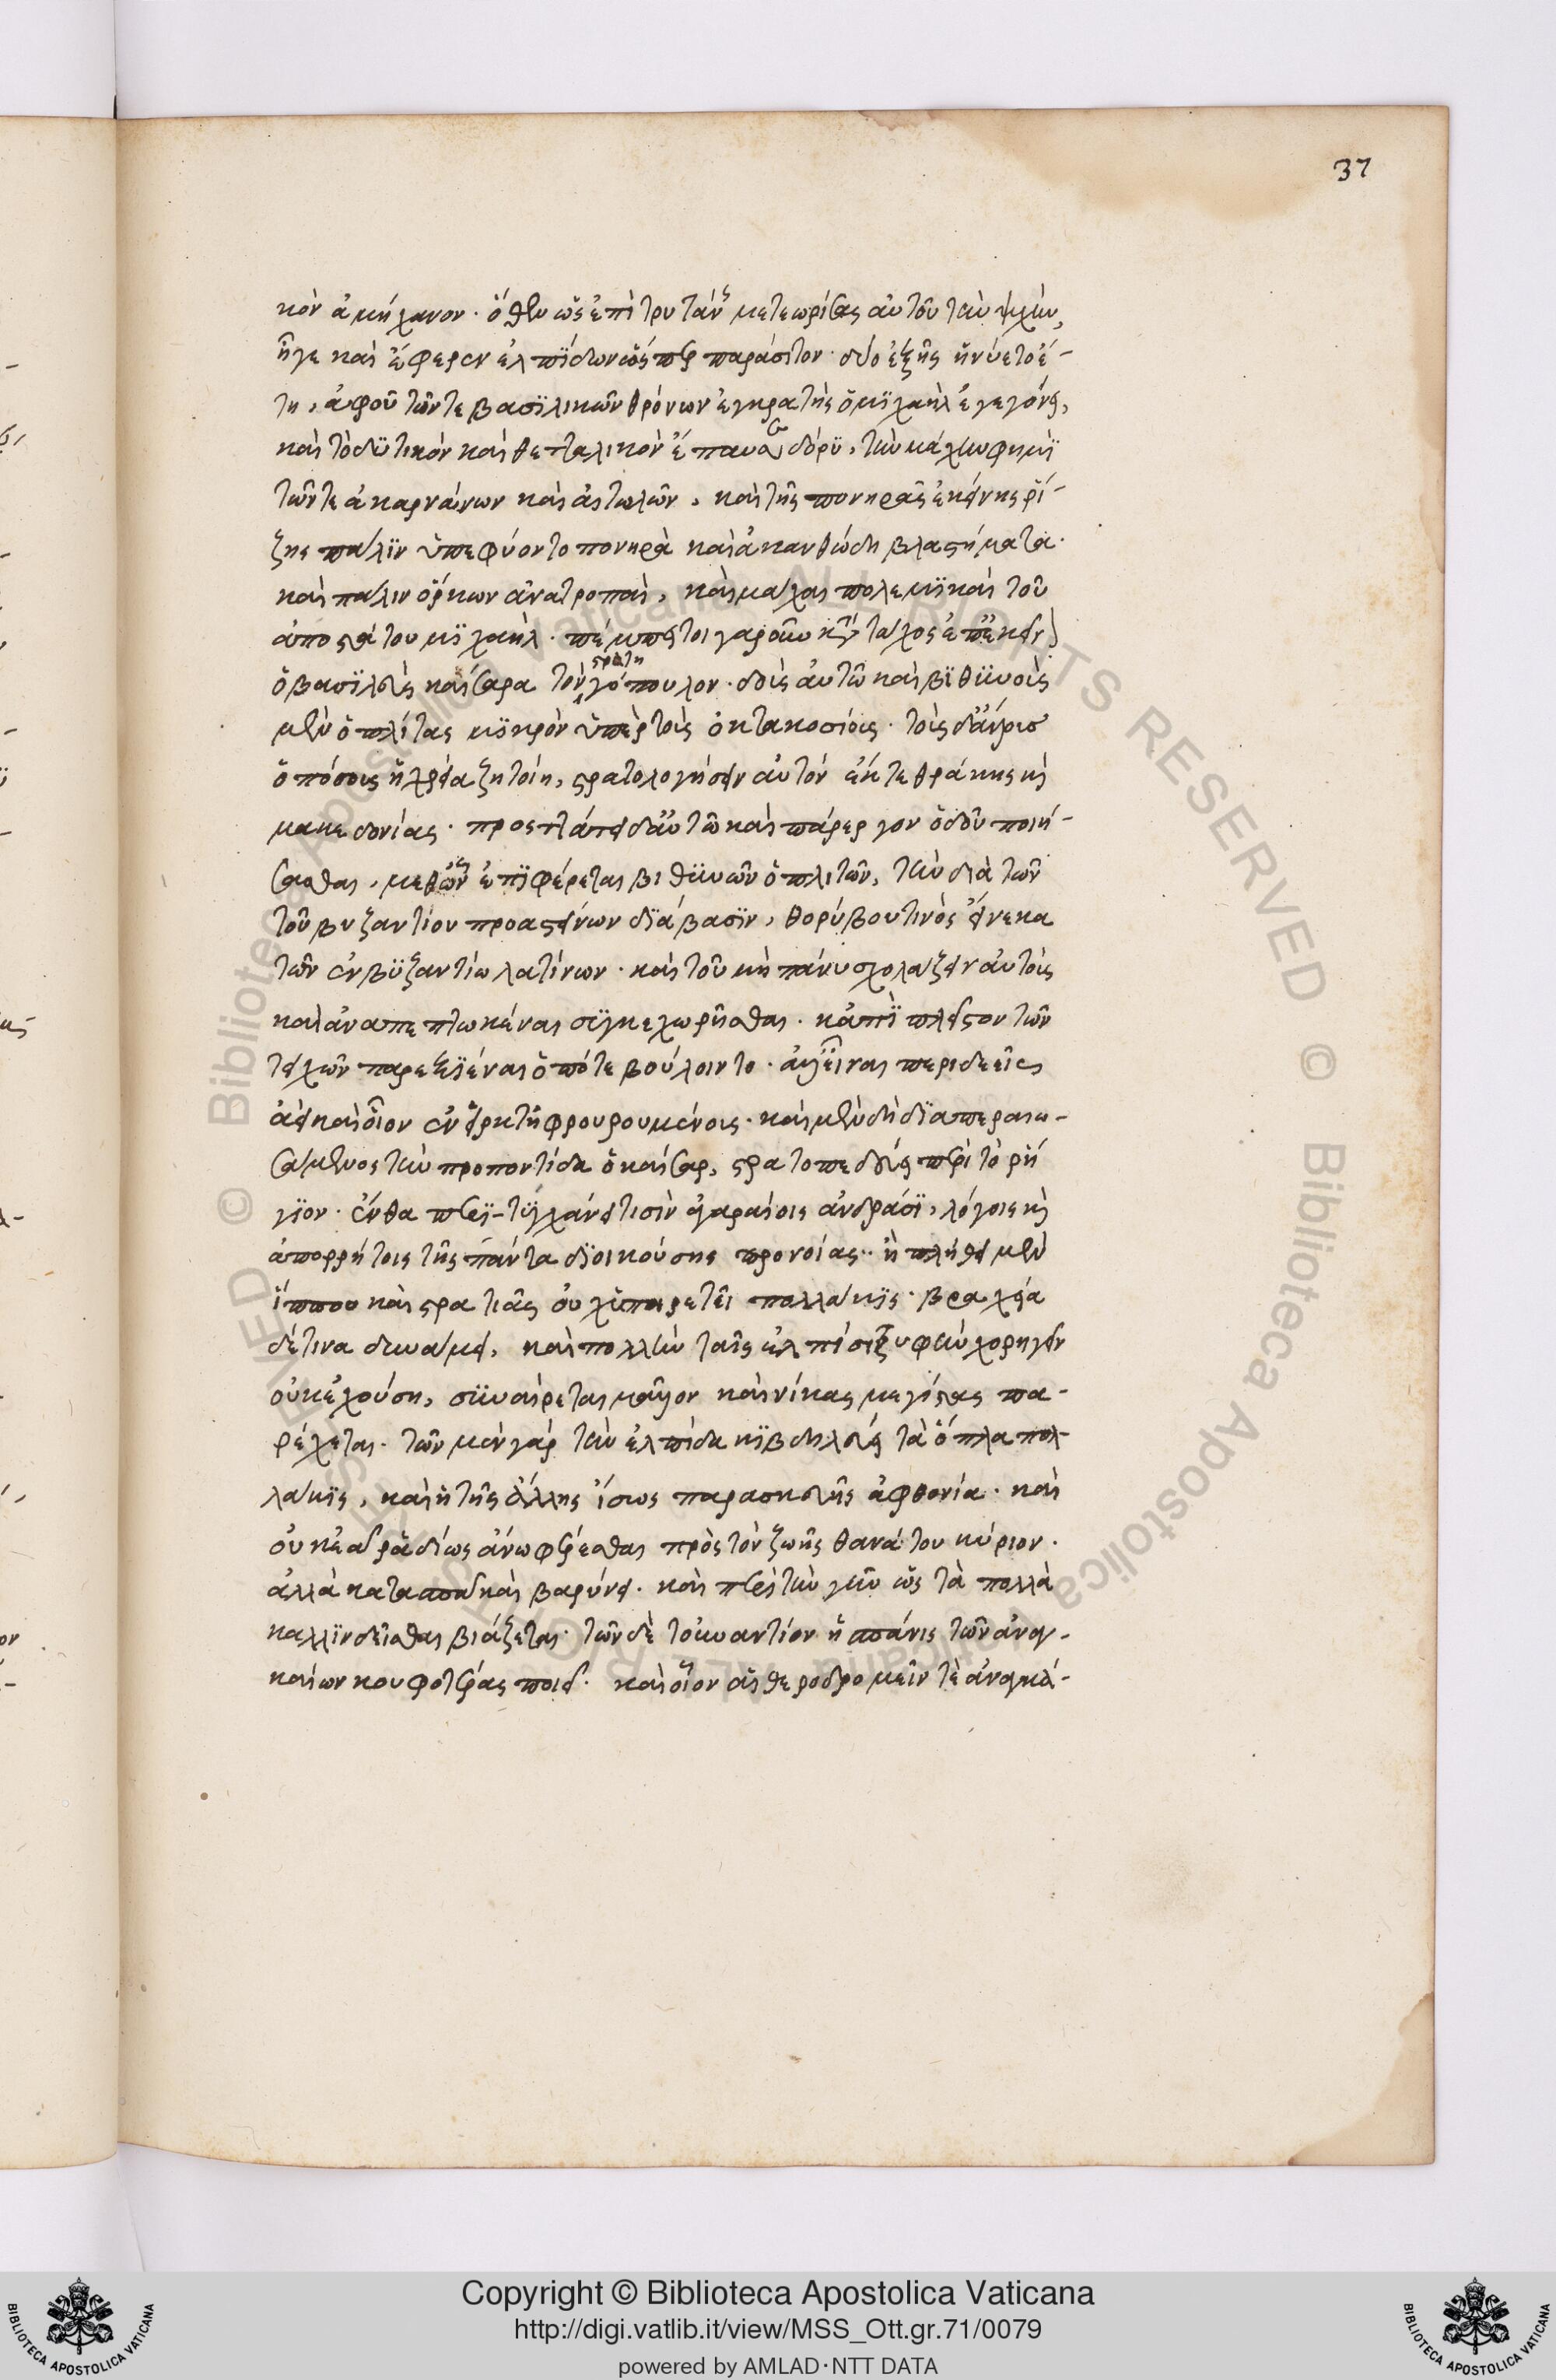 37
κὸν ἀμήχανον· ὅθεν ὡς ἐπὶ τρυτάνης μετεωρίσας αὐτοῦ τὴν ψυχὴν,
ἦγε καὶ ἔφερεν ἐλπίδων ὥσπερ παράσιτον· δύο ἑξῆς ἠνύετο ἔ-
τη, ἀφοῦ τῶν τε βασιλικῶν θρόνων ἐγκρατὴς ὁ μιχαὴλ ἐγεγόνει,
καὶ τὸ δυτικὸν καὶ θετταλικὸν ἔπαυσε δόρυ, τὴν μάχην φημὶ
τῶν τε ἀκαρνάνων καὶ αἰτωλῶν, καὶ τῆς πονηρᾶς ἐκείνης ῥί-
ζης πάλιν ὑπεφύοντο πονηρὰ καὶ ἀκανθώδη βλαστήματα·
καὶ πάλιν ὅρκων ἀνατροπαὶ, καὶ μάχαι πολεμικαὶ τοῦ
ἀποστάτου μιχαὴλ· πέμπει τοιγαροῦν κατὰ τάχος ἐπ' ἐκεῖν
ὁ βασιλεὺς καίσαρα τὸν στρατη
γόπουλον· δοὺς αὐτῷ καὶ βιθυνοὺς
μὲν ὁπλίτας μικρὸν ὑπὲρ τοὺς ὀκτακοσίους· τοὺς δ' ἄνρισ
ὁπόσους ἡ χρεία ζητοίη, στρατολογήσειν αὐτὸν ἔκ τε θράκης καὶ
μακεδονίας· προστάττει δ' αὐτῷ καὶ πάρεργον ὁδοῦ ποιή-
σασθαι, μεθ' ὧν ἐπιφέρεται βιθυνῶν ὁπλιτῶν, τὴν διὰ τῶν
τοῦ βυζαντίου προαστείων διάβασιν, θορύβου τινὸς εἵνεκα
τῶν ἐν βυζαντίῳ λατίνων· καὶ τοῦ μὴ πάνυ σχολάζειν αὐτοὺς
καὶ ἀναπεπτωκέναι συγκεχωρῆσθαι· κἀπὶ πλεῖστον τῶν
τειχῶν παρεξιέναι ὁπότε βούλοιντο· ἀλλ' εἶναι περιδεεῖς
ἀεὶ καὶ οἷον ἐν εἱρκτῇ φρουρουμένους· καὶ μὲν δὴ διαπεραιω-
σάμενος τὴν προποντίδα ὁ καίσαρ, στρατοπεδεύει περὶ τὸ ῥή
γιον· ἔνθα περιτυγχάνει τισὶν ἀγοραίοις ἀνδράσι, λόγοις καὶ
ἀπορρήτοις τῆς πάντα διοικούσης προνοίας·· ἣ πλήθει μὲν
ἵππου καὶ στρατιᾶς οὐχ ὑπηρετεῖ πολλάκις· βραχεῖα
δέ τινα δυνάμει, καὶ πολλὴν ταῖς ἐλπίσι τρυφὴν χορηγεῖν
οὐκ ἐχούσῃ, συναίρεται μᾶλλον καὶ νίκας μεγίστας πα-
ρέχεται· τῶν μὲν γὰρ τὴν ἐλπίδα κιβδηλεύει τὰ ὅπλα πολ-
λάκις, καὶ ἡ τῆς ἄλλης ἴσως παρασκευῆς ἀφθονία· καὶ
οὐκ ἐᾷ ῥᾳδίως ἄνω φέρεσθαι πρὸς τὸν ζωῆς θανάτου κύριον·
ἀλλὰ κατασπᾷ καὶ βαρύνει· καὶ περὶ τὴν γῆν ὡς τὰ πολλὰ
καλλινδεῖσθαι βιάζεται· τῶν δὲ τοὐναντίον ἡ σπάνις τῶν ἀναγ-
καίων κουφοτέρας ποιεῖ· καὶ οἷον αἰθεροδρομεῖν τὲ ἀναγκά-